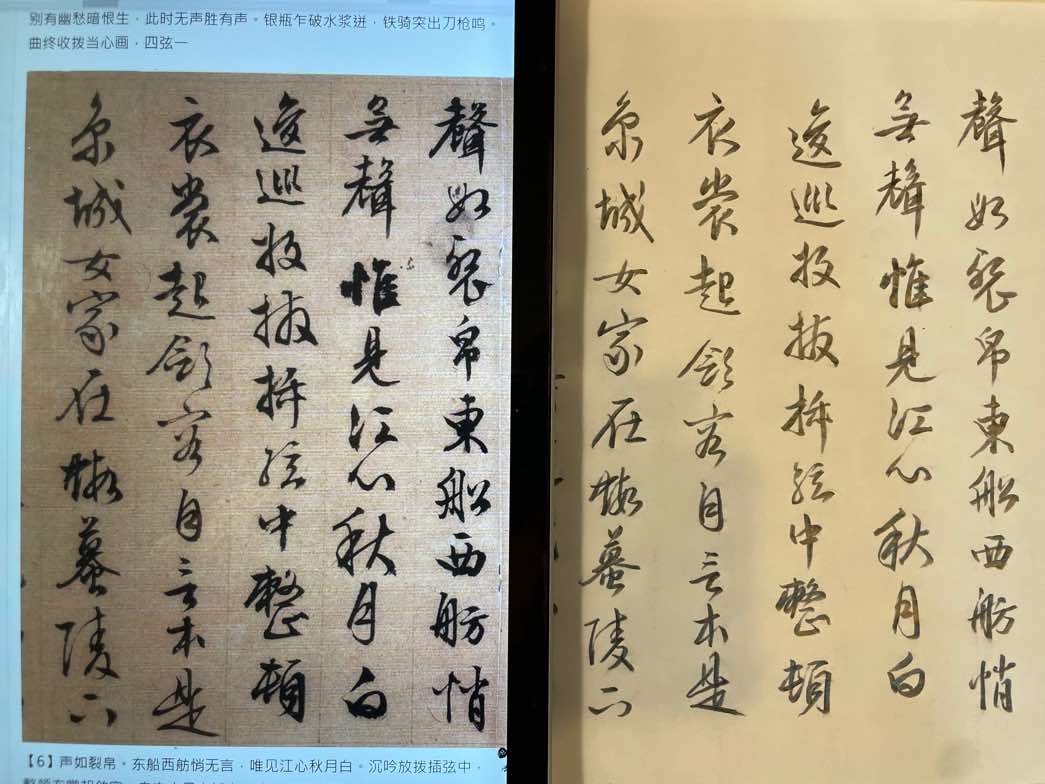 别有幽愁暗恨生，此时无声胜有声。银瓶乍破水浆迸，铁骑突出刀枪鸣。
曲终收拨当心画，四弦一
聲如裂帛東船西舫悄
無聲惟見江心秋月白
逡巡放撥插絃中整頓
衣裳起斂容自言本是
京城女家在蝦蟇陵下
【6】声如裂帛。东船西舫悄无言，唯见江心秋月白。沉吟放拨插弦中，
聲如裂帛東船西舫悄
無聲惟見江心秋月白
逡巡放撥插絃中整頓
衣裳起斂容自言本是
京城女家在蝦蟇陵下